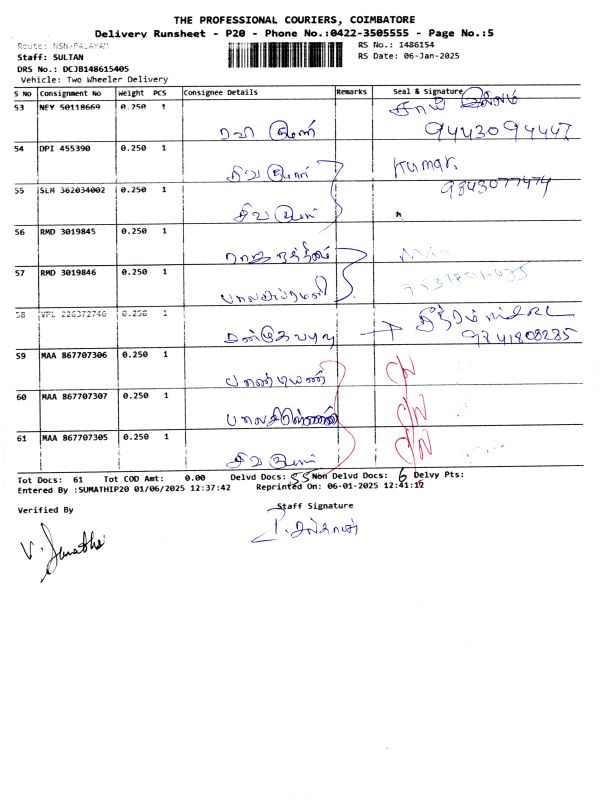 THE PROFESSIONAL COURIERS, COIMBATORE
Delivery Runsheet - P20 - Phone No.:0422-3505555 - Page No.:5
Route: NSN-PALAYAM
RS No.: 1486154
Staff: SULTAN
RS Date: 06-Jan-2025
DRS No.: DCJB148615405
Vehicle: Two Wheeler Delivery
S No Consignment No Weight PCS Consignee Details Remarks Seal & Signature
53 NEY 50118669 0.250 1
ரவி குமார் 9443094447
54 DPI 455390 0.250 1
சிவ குமார் Kumar.
9843077474
55 SLM 362034002 0.250 1
சிவ குமார்
56 RMD 3019845 0.250 1
57 RMD 3019846 0.250 1
58 VPL 226372746 0.250 1
9841808285
59 MAA 867707306 0.250 1
பாண்டியன்
60 MAA 867707307 0.250 1
61 MAA 867707305 0.250 1
சிவ குமார்
Tot Docs: 61 Tot COD Amt: 0.00 Delvd Docs: 55 Non Delvd Docs: 6 Delvy Pts:
Entered By :SUMATHIP20 01/06/2025 12:37:42 Reprinted On: 06-01-2025 12:41:12
Verified By Staff Signature